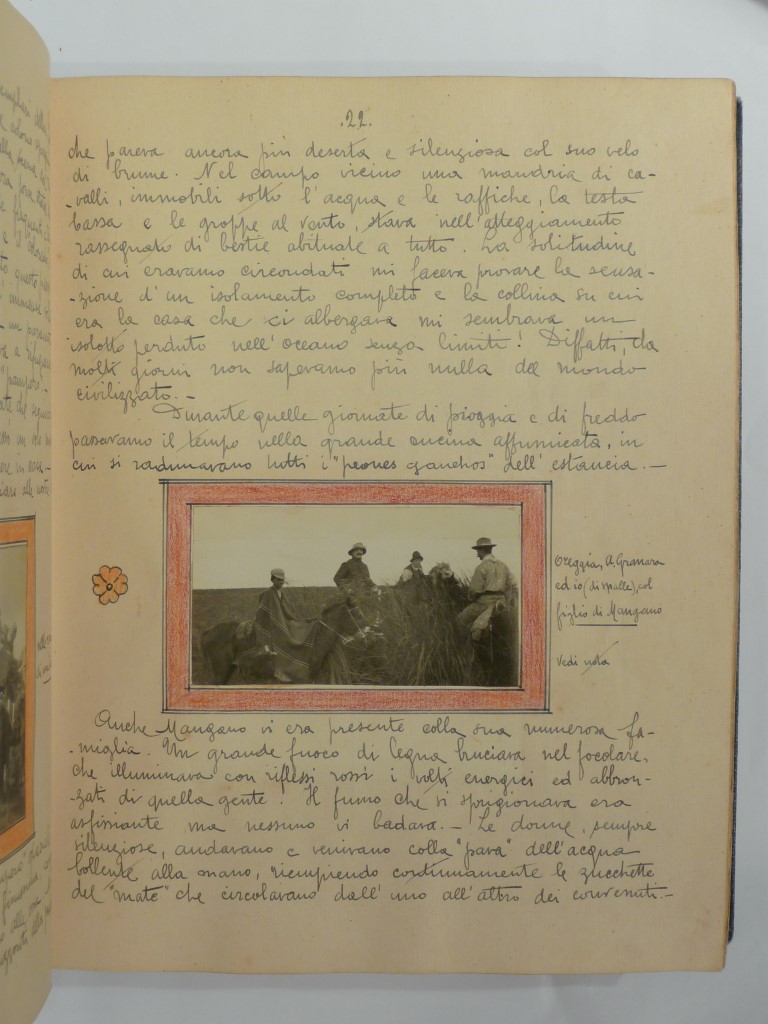 .22.
che pareva ancora più deserta e silenziosa col suo velo
di brume. Nel campo vicino una mandria di ca-
-valli, immobili sotto l'acqua e le raffiche, la testa
bassa e le groppe al vento, stava nell'atteggiamento
rassegnato di bestie abituate a tutto. La solitudine
di cui eravamo circondati mi faceva provare la sensa-
-zione d'un isolamento completo e la collina su cui
era la casa che ci albergava mi sembrava un
isolotto perduto nell'oceano senza limiti! Diffatti, da
molti giorni non sapevamo più nulla del mondo
civilizzato.-
Durante quelle giornate di pioggia e di freddo
passavamo il tempo nella grande cucina affumicata, in
cui si radunavano tutti i "peones gauchos" dell'estancia.-
Oreggia, A. Granara
ed io (di spalle), col
figlio di Mangano
Vedi nota
Anche Mangano vi era presente colla sua numerosa fa-
-miglia. Un grande fuoco di legna bruciava nel focolare,
che illuminava con riflessi rossi i volti energici ed abbron-
-zati di quella gente. Il fumo che si sprigionava era
asfissiante ma nessuno vi badava.- Le donne, sempre
silenziose, andavano e venivano colla "pava" dell'acqua
bollente alla mano, riempiendo continuamente le zucchette
del "mate" che circolavano dall'uno all'altro dei convenuti.-